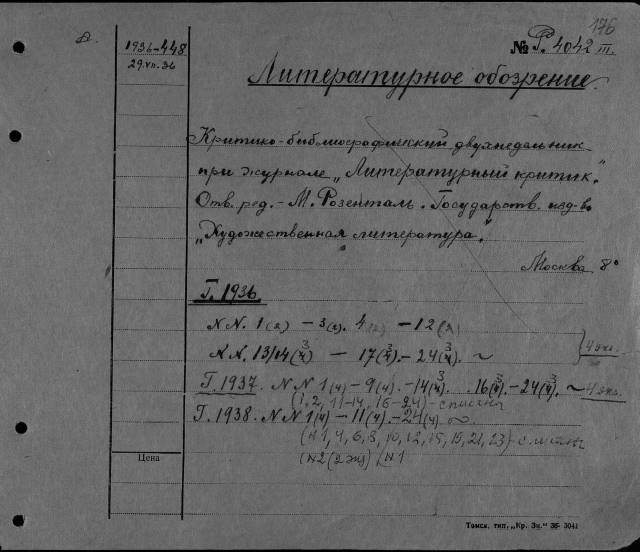 176
1936-448
29.VII.36
№ Р. 4042 III.
Литературное обозрение.
Критико-библиографический двухнедельник
при журнале „Литературный критик".
Отв. ред. - М. Розенталь. Государств. изд-во
„Художественная литература".
Москва 8°
Г. 1936
NN. 1(2) - 3(2). 4(2) - 12(2)
NN. 13/14(4) 3 - 17(4) 3. - 24(4) 3. ~
4 экз.
Г. 1937. NN 1(4) - 9(4). - 14(4) 3. 16(4) 3. - 24(4) 3. ~ 4 экз.
(1, 2, 11-14, 16-24) - списаны
Г. 1938. NN 1(4) - 11(4). - 24(4)
(N 1, 4, 6, 8, 10, 12, 15, 19, 21, 23)
(N2 (2 экз), N1
Цена
Томск. тип. „Кр. Зн." 36- 3041